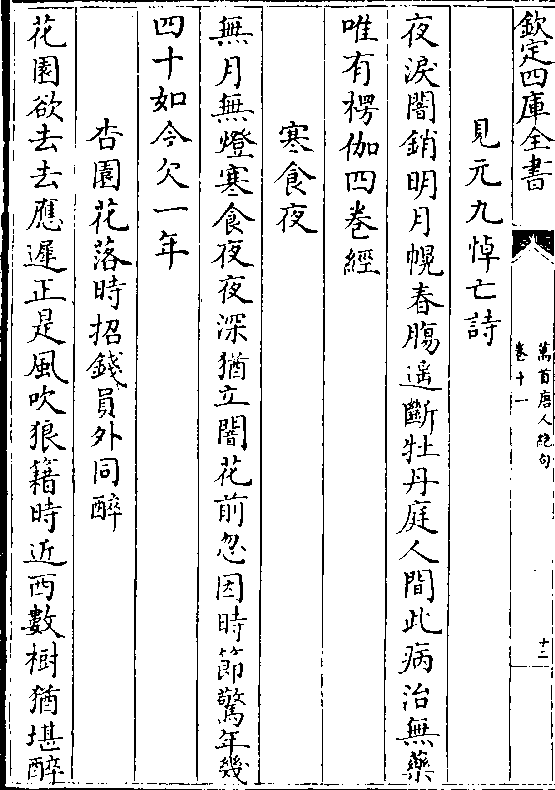 欽定四庫全書
萬首唐人絶句
卷十一
十二
見元九悼亡詩
夜淚闇銷明月幌春腸遥斷牡丹庭人間此病治無藥
唯有楞伽四卷經
寒食夜
無月無燈寒食夜夜深猶立闇花前忽因時節驚年幾
四十如今欠一年
杏園花落時招錢員外同醉
花園欲去去應遲正是風吹狼籍時近西數樹猶堪醉